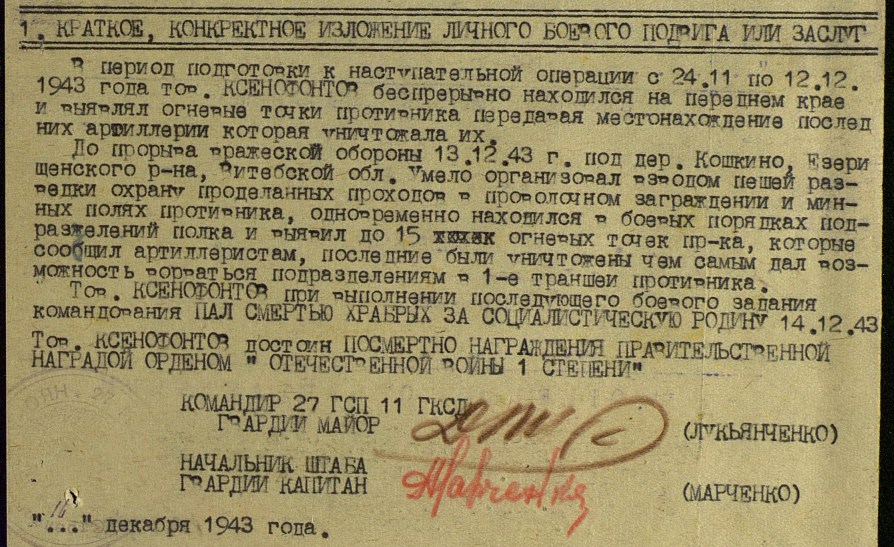 1. КРАТКОЕ, КОНКРЕТНОЕ ИЗЛОЖЕНИЕ ЛИЧНОГО БОЕВОГО ПОДВИГА ИЛИ ЗАСЛУГ
В период подготовки к наступательной операции с 24.11 по 12.12.
1943 года тов. КСЕНОФОНТОВ беспрерывно находился на переднем крае
и выявлял огневые точки противника передавая местонахождение послед
них артиллерии которая уничтожала их.
До прорыва вражеской обороны 13.12.43 г. под дер. Кошкино, Езери
щенского р-на, Витебской обл. Умело организовал взводом пешей раз-
ведки охрану проделанных проходов в проволочном заграждении и мин-
ных полях противника, одновременно находился в боевых порядках под-
разжелений полка и выявил до 15 огневых точек пр-ка, которые
сообщил артиллеристам, последние были уничтожены чем самым дал воз-
можность ворваться подразделениям в 1-е траншеи противника.
Тов. КСЕНОФОНТОВ при выполнении последующего боевого задания
командования ПАЛ СМЕРТЬЮ ХРАБРЫХ ЗА СОЦИАЛИСТИЧЕСКУЮ РОДИНУ 14.12.43
Тов. КСЕНОФОНТОВ достоин ПОСМЕРТНО НАГРАЖДЕНИЯ ПРАВИТЕЛЬСТВЕННОЙ
НАГРАДОЙ ОРДЕНОМ " ОТЕЧЕСТВЕННОЙ ВОЙНЫ 1 СТЕПЕНИ"
КОМАНДИР 27 ГСП 11 ГКСД
ГВАРДИИ МАЙОР (ЛУКЬЯНЧЕНКО)
НАЧАЛЬНИК ШТАБА
ГВАРДИИ КАПИТАН Марченко (МАРЧЕНКО)
"..." декабря 1943 года.